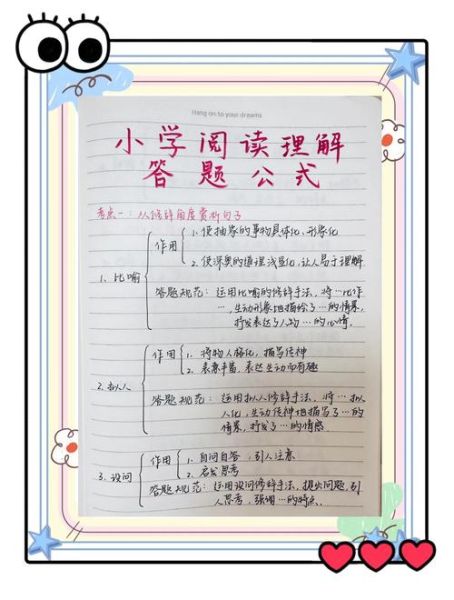 Hang on to your dreams
小学阅读理解
答题公式
考点一：从修辞角度赏析句子
1. 比喻
作用
1. 使抽象的事物具体化、形象化
2. 使深奥的道理浅显化，让人易于理解
答题规范：运用比喻的修辞手法，将…比作
…，生动形象地描绘了…的情景，
抒发表达了人物…的心情。
2. 拟人
作用
1. 将物人格化，描写传神
2. 表意丰富，表达生动而有趣
答题规范：运用拟人修辞手法，将…拟
人化，生动传神地描写了…的
情景，抒发了…的情感
3. 设问
作用
1. 自问自答，引人注意
2. 启发思考
答题规范：运用设问修辞手法，提出问题，引
人思考，强调…的特点。